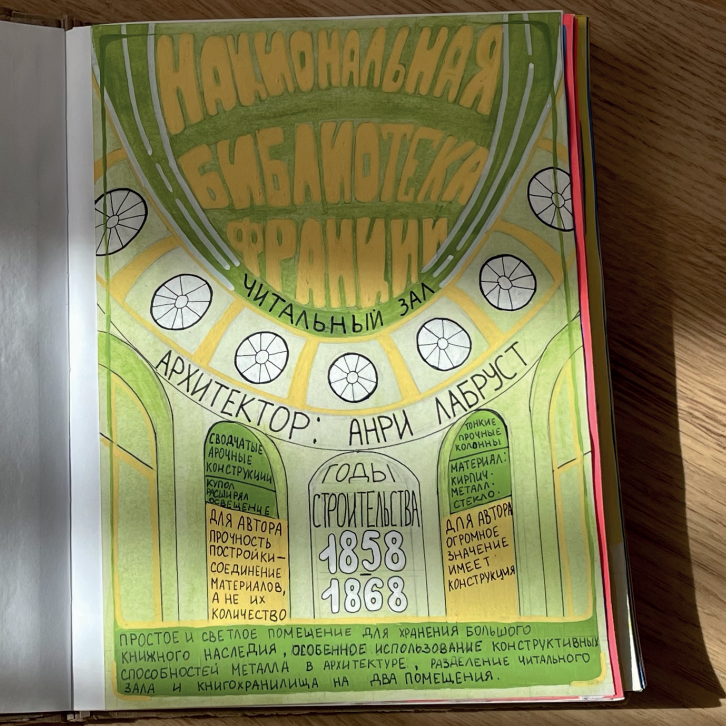 НАЦИОНАЛЬНАЯ
БИБЛИОТЕКА
ФРАНЦИИ
ЧИТАЛЬНЫЙ ЗАЛ
АРХИТЕКТОР: АНРИ ЛАБРУСТ
СВОДЧАТЫЕ
АРОЧНЫЕ
КОНСТРУКЦИИ
КУПОЛ
РАСШИРЯЛ
ОСВЕЩЕНИЕ
ДЛЯ АВТОРА
ПРОЧНОСТЬ
ПОСТРОЙКИ—
СОЕДИНЕНИЕ
МАТЕРИАЛОВ,
А НЕ ИХ
КОЛИЧЕСТВО
ГОДЫ
СТРОИТЕЛЬСТВА
1858
1868
ТОНКИЕ
ПРОЧНЫЕ
КОЛОННЫ
МАТЕРИАЛ:
КИРПИЧ-
МЕТАЛЛ-
СТЕКЛО.
ДЛЯ АВТОРА
ОГРОМНОЕ
ЗНАЧЕНИЕ
ИМЕЕТ
КОНСТРУКЦИЯ
ПРОСТОЕ И СВЕТЛОЕ ПОМЕЩЕНИЕ ДЛЯ ХРАНЕНИЯ БОЛЬШОГО
КНИЖНОГО НАСЛЕДИЯ, ОСОБЕННОЕ ИСПОЛЬЗОВАНИЕ КОНСТРУКТИВНЫХ
СПОСОБНОСТЕЙ МЕТАЛЛА В АРХИТЕКТУРЕ, РАЗДЕЛЕНИЕ ЧИТАЛЬНОГО
ЗАЛА И КНИГОХРАНИЛИЩА НА ДВА ПОМЕЩЕНИЯ.